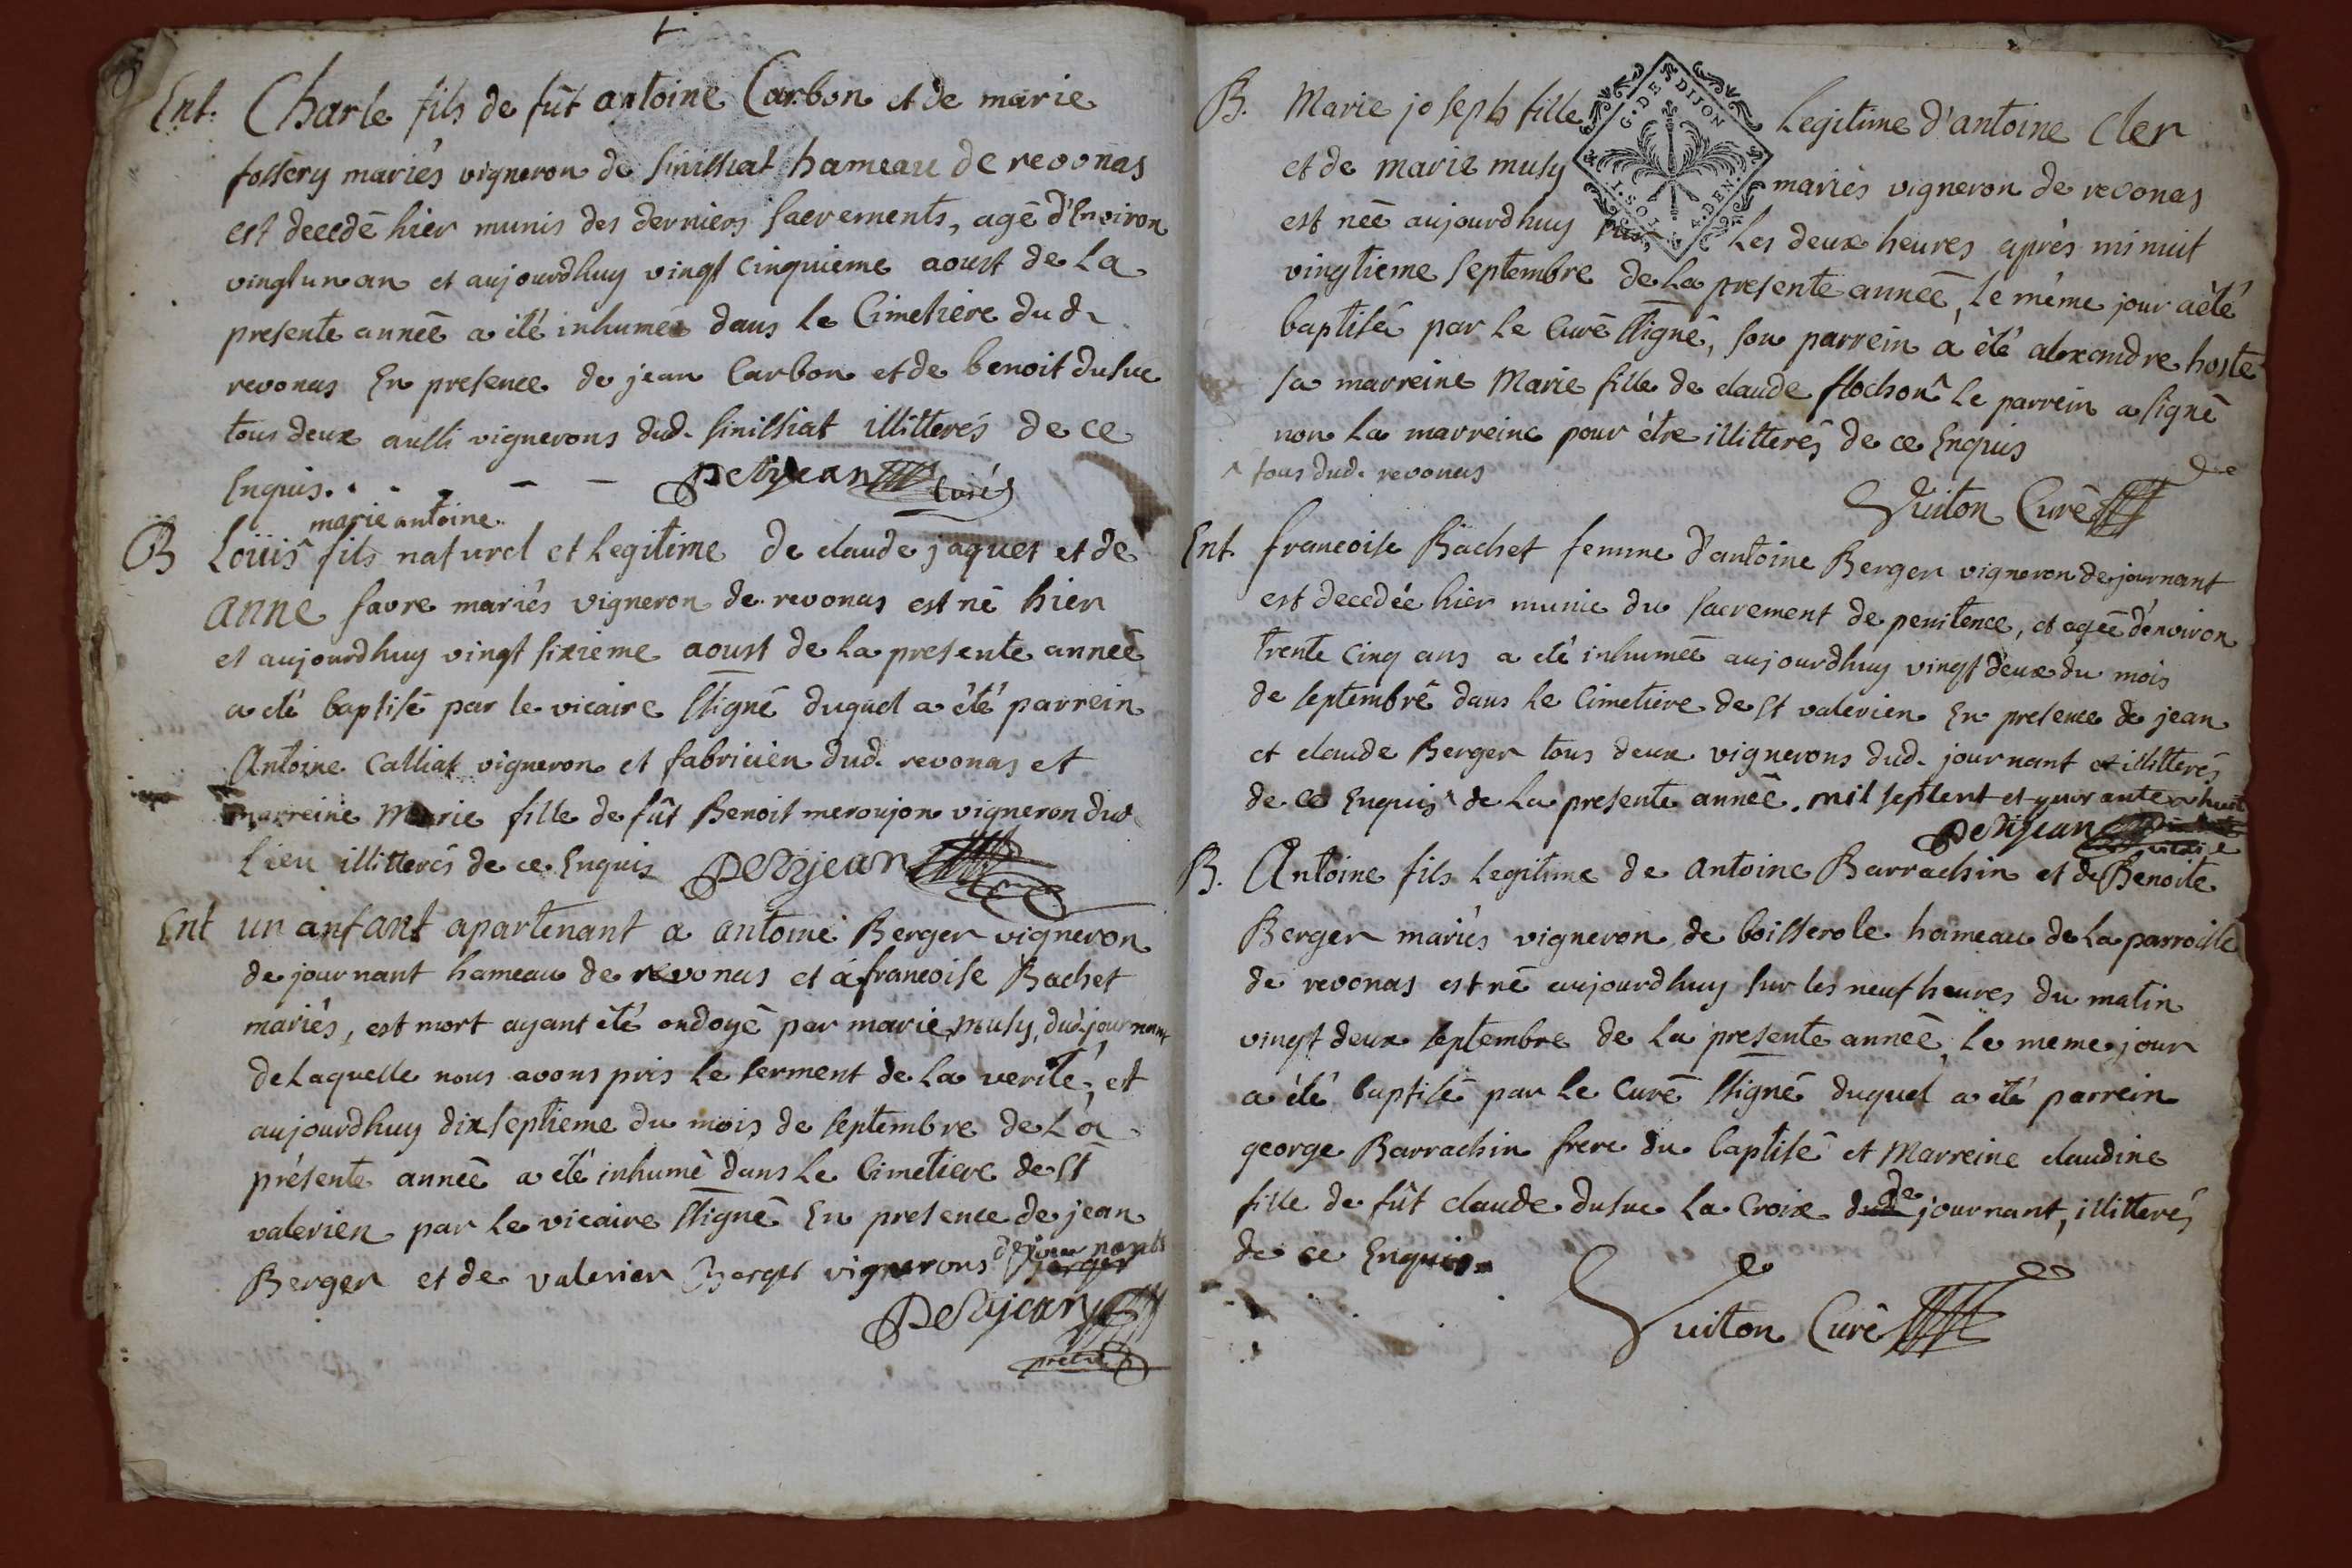 Ent. Charle fils de fût antoine Carbon et de marie
follery mariés vigneron de sinissiat hameau de revonas
est decedé hier munis des derniers sacrements, agé d'Environ
vingt un an et aujourdhuy vingt cinquieme aoust de La
presente année a été inhumé dans le Cimetiere dud.
revonas En presence de jean Carbon et de benoit dusuc
tous deux aussi vignerons dud. sinissiat illitterés de ce
Enquis.
marie antoine
B Loüis^ fils naturel et Legitime de claude jaquet et de
anne favre mariés vigneron de revonas est né hier
et aujourdhuy vingt sixieme aoust de la presente année
a été baptisé par le vicaire ssigné duquel a été parrein
Antoine Calliat vigneron et fabricien dud. revonas et
marreine Marie fille de fût Benoit meroujon vigneron dud.
Lieu illitterés de ce Enquis
Ent un anfant apartenant a antoine Berger vigneron
de journant hameau de revonas et a francoise Bachet
mariés, est mort ayant été ondoyé par marie musy, dud. journant
de Laquelle nous avons pris le serment de la verité, et
aujourdhuy dix septieme du mois de septembre de La
présente année a été inhumé dans Le Cimetiere de St
valerien par le vicaire ssigné En presence de jean
Berger et de valerien Berger vignerons de journant
prêtre
B. Marie joseph fille Legitime d'antoine Cler
G. DE DIJON
et de marie musy mariés vigneron de revonas
est née aujourdhuy sur Les deux heures après minuit
vingtieme septembre de La presente année, le même jour a été
baptisé par le Curé ssigné, son parrein a été alexandre hoste
sa marreine Marie fille de claude flochon^ Le parrein a signé
non La marreine pour être illitterés de ce Enquis
^ tous dud. revonas
Guiton Curé
Ent. francoise Bachet femme d'antoine Berger vigneron de journant
est decedée hier munie du sacrement de penitence, et agée d'environ
trente cinq ans a été inhumée aujourdhuy vingt deux du mois
de septembre dans le Cimetiere de St valerien En presence de jean
et claude Berger tous deux vignerons dud. journant et illitterés
de ce Enquis^ de La presente année. mil septent et quarante huit
B. Antoine fils Legitime de Antoine Barrachin et de Benoite
Berger mariés vigneron de boisserole hameau de La parroisse
de revonas est né aujourdhuy sur les neuf heures du matin
vingt deux septembre de la presente année, Le meme jour
a été baptisé par le Curé ssigné duquel a été parrein
george Barrachin frere du baptisé et Marreine claudine
fille de fût claude dusuc La Croix de journant, illitterés
de ce Enquis.
Guiton Curé